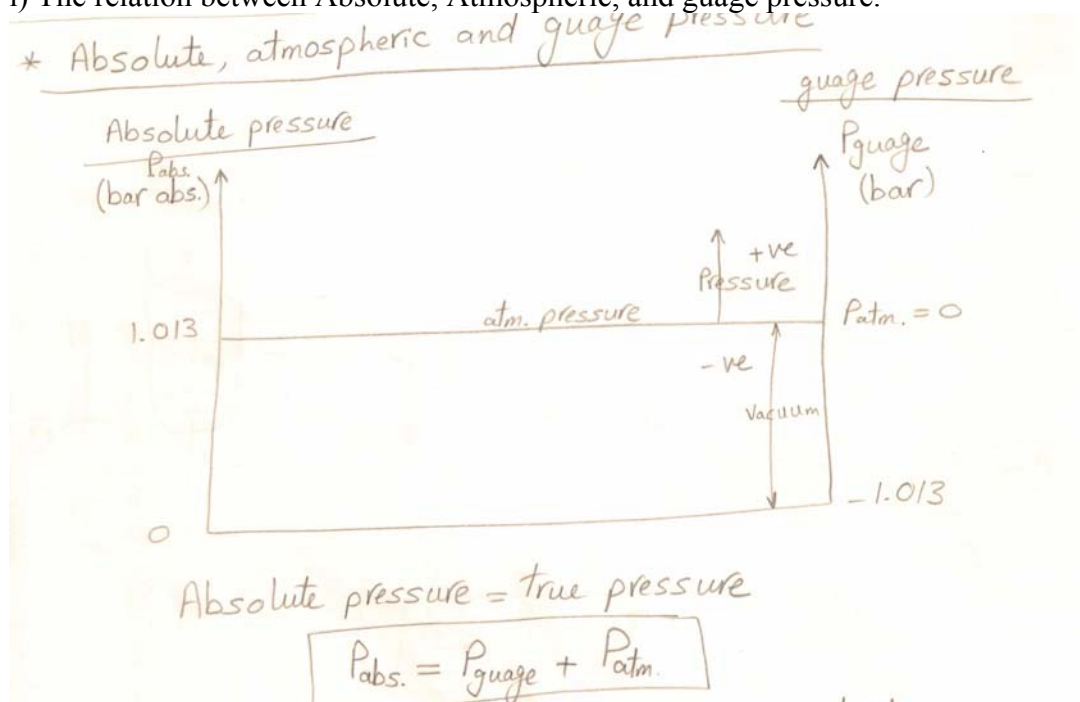 i) The relation between Absolute, Atmospheric, and guage pressure.
* Absolute, atmospheric and guage pressure
guage pressure
Absolute pressure
Pabs.
(bar abs.)
Pguage
(bar)
+ve
Pressure
1.013
atm. pressure
Patm. = 0
- ve
Vacuum
- 1.013
0
Absolute pressure = true pressure
Pabs. = Pguage + Patm.